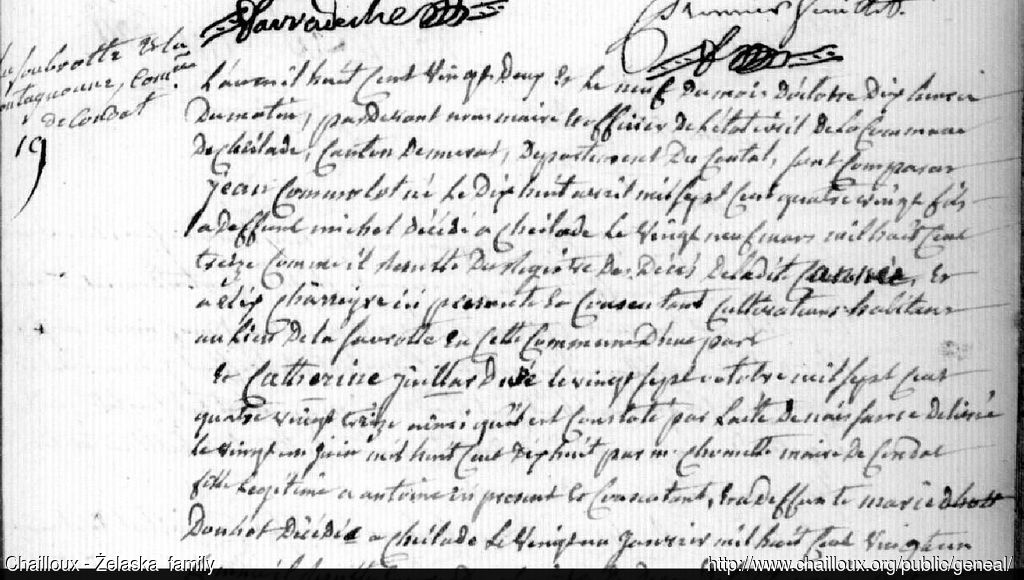 Lavradeche
la soubrotte et la
montagnoune, Comne
de Condat
19
L'an mil huit Cent Vingt Deux et le neuf Du mois D'octobre Dix heures
Du matin, pardevant nous maire et officier De L'état civil De la Commune
De Cheilade, Canton De murat, Departement Du Cantal, sont Comparus
jean Commolot né Le Dix huit avril mil sept Cent quatre vingt fils
a Deffunt michel Décédé a Cheilade Le Vingt neuf mars mil huit Cent
treize Comme il résulte Des Registre Des Décés De ladite année, et
a Charreyre ici presente et Consentant Cultivateurs habitans
au Lieu De la En Cette Commune D'une part
Et Catherine juillard née le vingt sept octobre mil sept Cent
quatre vingt treize ainsi qu'il est Constaté par L'acte De naissance Delivré
le vingt un juin mil huit Cent Dix huit par mr Chomette maire De Condat
fille Legitime a antoine ici present et Consentant, et a deffunte marie
Donhot Décédée a Cheilade Le Vingt un Janvier mil huit Cent Vingt un
Chailloux - Żelaska family
http://www.chailloux.org/public/geneal/